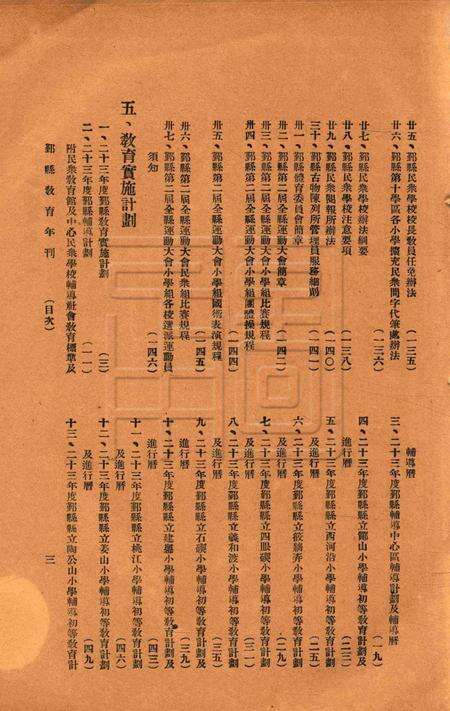 廿五、鄞縣民衆學校校長敎員任免辦法 (一三五)
廿六、鄞縣第十學區各小學擴充民衆問字代筆處辦法 (一三六)
廿七、鄞縣民衆學校辦法綱要
廿八、鄞縣民衆學校注意要項 (一三八)
廿九、鄞縣民衆閱報所辦法 (一四〇)
三十、鄞縣古物陳列所管理員服務細則 (一四一)
卅一、鄞縣體育委員會簡章
卅二、鄞縣第二屆全縣運動大會簡章 (一四二)
卅三、鄞縣第二屆全縣運動大會小學組比賽規程
卅四、鄞縣第二屆全縣運動大會小學組團體操規程 (一四四)
卅五、鄞縣第二屆全縣運動大會小學組國術表演規程 (一四五)
卅六、鄞縣第二屆全縣運動大會民衆組比賽規程
卅七、鄞縣第二屆全縣運動大會小學組各校選派運動員
須知 (一四六)
五、敎育實施計劃
一、二十三年度鄞縣敎育實施計劃 (三)
二、二十三年度鄞縣輔導計劃 (一一)
附民衆敎育館及中心民衆學校輔導社會敎育標準及
輔導曆
三、二十三年度鄞縣輔導中心區輔導計劃及輔導曆 (一九)
四、二十三年度鄞縣縣立館山小學輔導初等敎育計劃
及進行曆 (二二)
五、二十三年度鄞縣縣立西河沿小學輔導初等敎育計劃
及進行曆 (二五)
六、二十三年度鄞縣縣立筱牆弄小學輔導初等敎育計劃
及進行曆 (二九)
七、二十三年度鄞縣縣立四眼碶小學輔導初等敎育計劃
及進行曆 (三一)
八、二十三年度鄞縣縣立義和渡小學輔導初等敎育計劃
及進行曆 (三五)
九、二十三年度鄞縣縣立石碶小學輔導初等敎育計劃及
進行曆 (三九)
十、二十三年度鄞縣縣立建嶴小學輔導初等敎育計劃及
進行曆 (四三)
十一、二十三年度鄞縣縣立桃江小學輔導初等敎育計劃
及進行曆 (四六)
十二、二十三年度鄞縣縣立姜山小學輔導初等敎育計劃
及進行曆 (四九)
十三、二十三年度鄞縣縣立陶公山小學輔導初等敎育計
鄞縣敎育年刊 (目次) 三